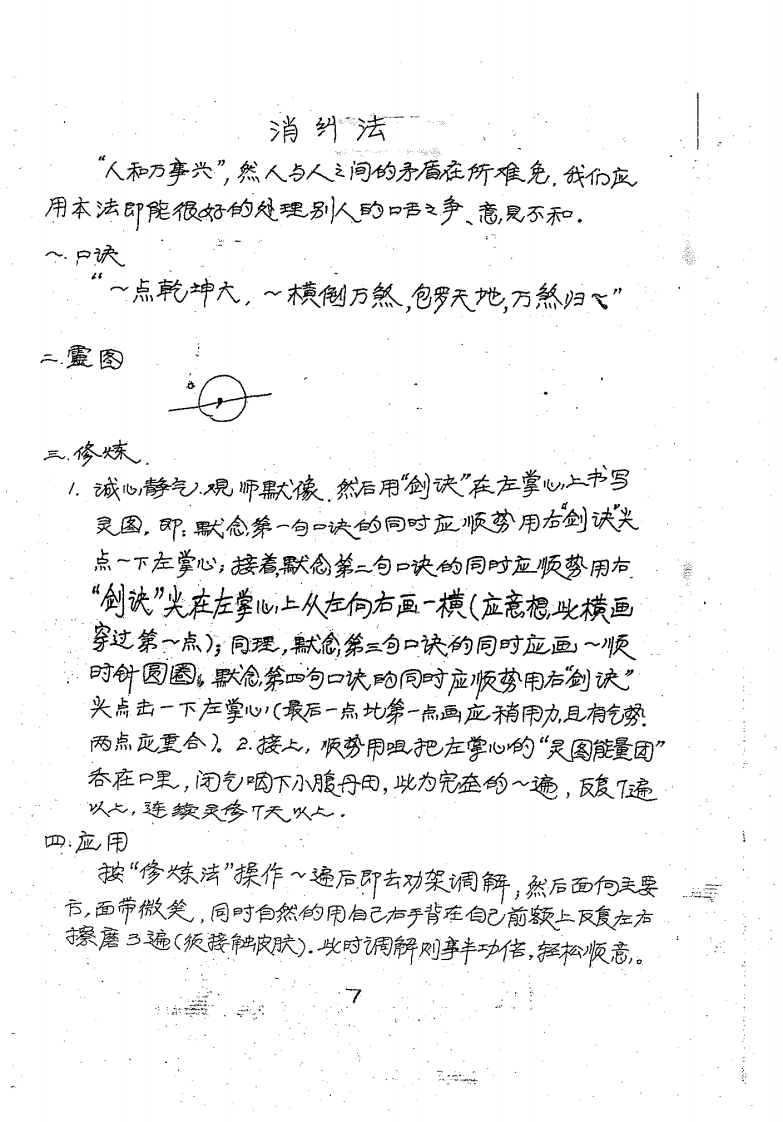 消纠法
“人和万事兴”,然人与人之间的矛盾在所难免.我们应
用本法即能很好的处理别人的口舌之争、意见不和.
一.口诀
“一点乾坤大,一横倒万煞,包罗天地,万煞归一”
二.靈图
三.修炼.
1. 诚心静气.观师默像.然后用“剑诀”在左掌心上书写
灵图.即:默念第一句口诀的同时应顺势用右“剑诀”尖
点一下左掌心;接着默念第二句口诀的同时应顺势用右
“剑诀”尖在左掌心上从左向右画一横(应意想此横画
穿过第一点);同理,默念第三句口诀的同时应画一顺
时针圆圈;默念第四句口诀的同时应顺势用右“剑诀”
尖点击一下左掌心(最后一点比第一点画应稍用力,且有气势.
两点应重合)。2.接上,顺势用咀把左掌心的“灵图能量团”
吞在口里,闭气咽下小腹丹田,此为完整的一遍,反复7遍
以上,连续灵修7天以上.
四.应用
按“修炼法”操作一遍后即去劝架调解;然后面向主要
方,面带微笑,同时自然的用自己右手背在自己前额上反复左右
擦磨3遍(须接触皮肤).此时调解则事半功倍,轻松顺意。
7